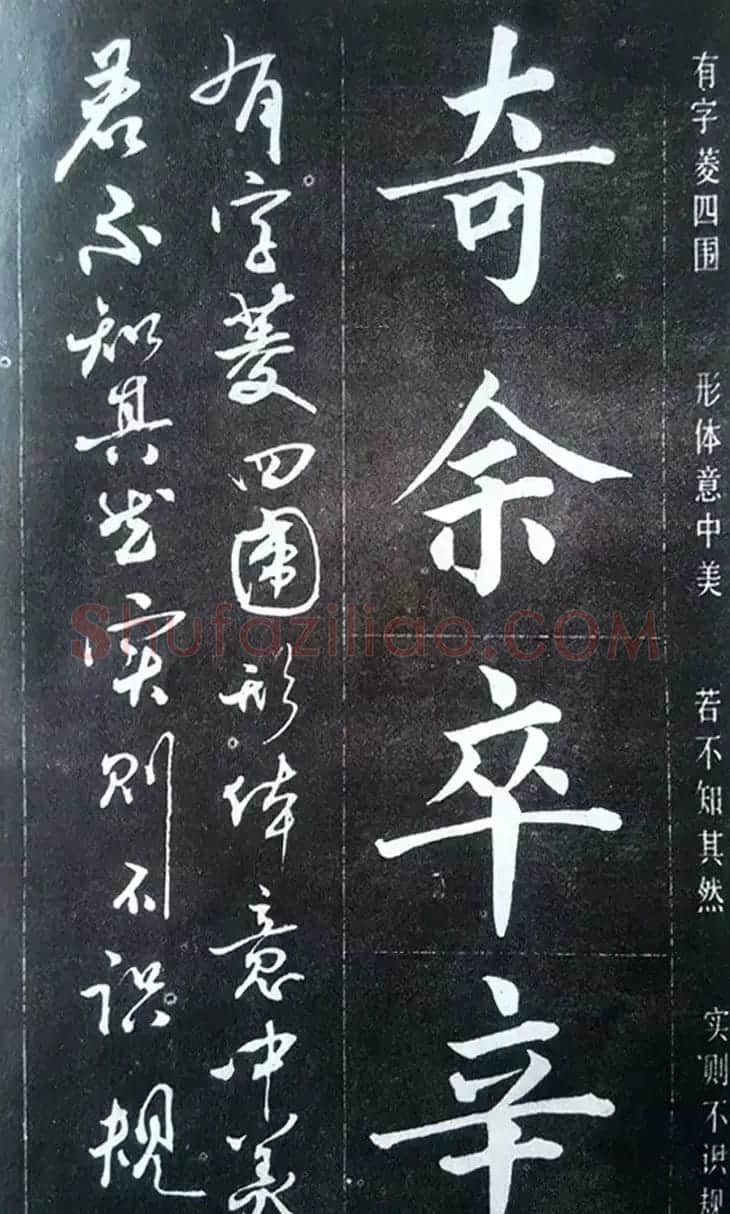 有字菱四围 形体意中美 若不知其然 实则不识规
奇余卒辛
有字菱四围形体意中美
若不知其然实则不识规
Shufaziliao.COM